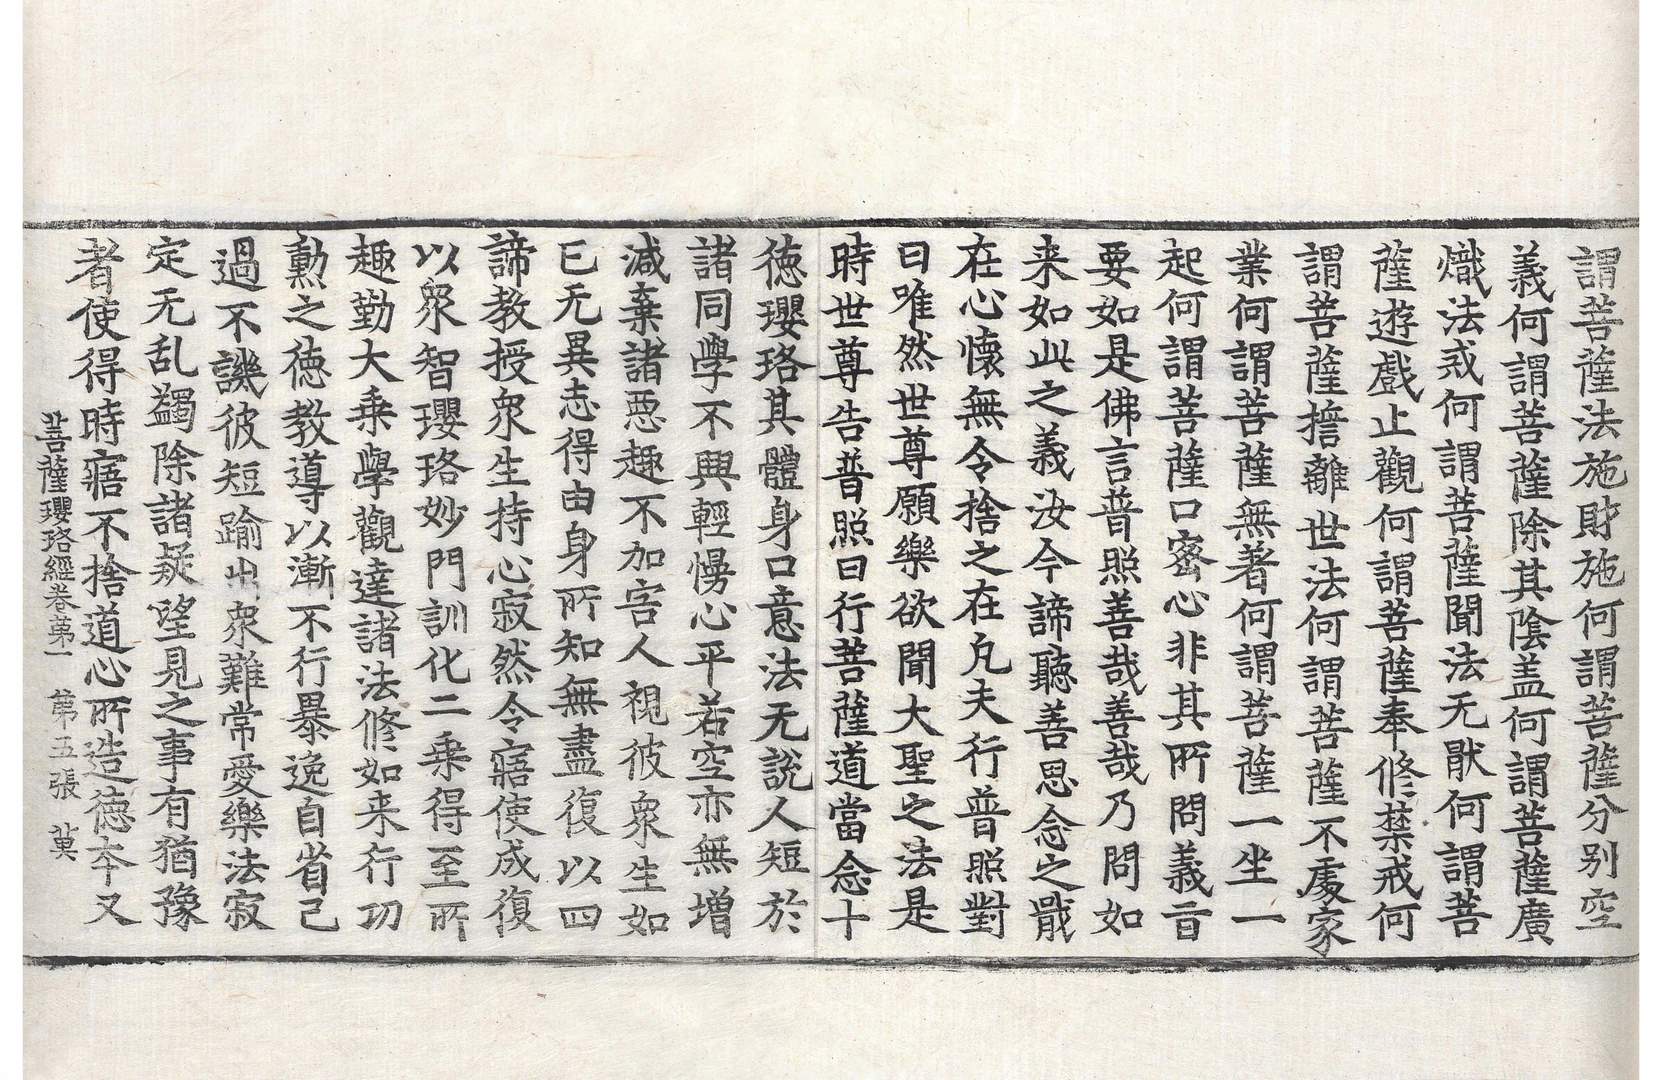 謂菩薩法施財施何謂菩薩分別空
義何謂菩薩除其陰盖何謂菩薩廣
熾法戒何謂菩薩聞法无猒何謂菩
薩遊戲止觀何謂菩薩奉修禁戒何
謂菩薩擔離世法何謂菩薩不處家
業何謂菩薩無著何謂菩薩一坐一
起何謂菩薩口密心非其所問義亘
要如是佛言普照善哉善哉乃問如
来如此之義汝今諦聽善思念之戢
在心懷無令捨之在凢夫行普照對
曰唯然世尊願樂欲聞大聖之法是
時世尊告普照曰行菩薩道當念十
徳瓔珞其體身口意法无說人短於
諸同學不興輕慢心平若空亦無增
減棄諸惡趣不加害人視彼衆生如
已无異志得由身所知無盡復以四
諦教授衆生持心寂然令寤使成復
以衆智瓔珞妙門訓化二乗得至所
趣勤大乗學觀達諸法修如来行功
勳之徳教導以漸不行暴逸自省己
過不譏彼短踰出衆難常愛樂法寂
定无乱蠲除諸疑望見之事有猶豫
者使得時寤不捨道心所造德夲又
菩薩瓔珞經卷苐一　苐五張　萛